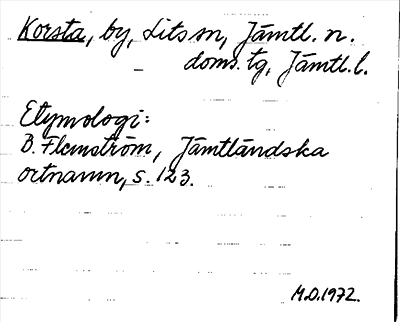 Korsta, by, Lits sn, Jämtl. n.
doms. tg, Jämtl. l.
Etymologi:
B. Flemström, Jämtländska
ortnamn, s. 123.
M.O. 1972.